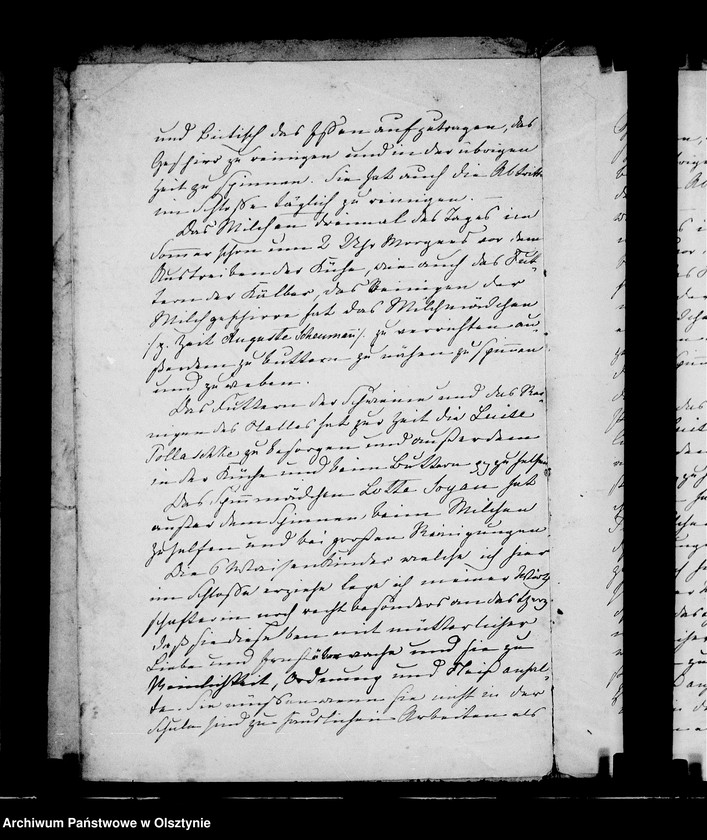 und Leutisch das Essen aufzutragen, das
Geschirr zu reinigen und in der übrigen
Zeit zu spinnen. Sie hat auch die Abtritte
im Schlosse täglich zu reinigen. —
Das Milchen dreimal des Tages im
Sommer schon um 2 Uhr Morgens vor dem
Austreiben der Kühe, wie auch das Fut-
tern der Kälber, das Reinigen der
Milchgeschirre hat das Milchmädchen
/z. Zeit Auguste Scheumann/. zu verrichten au-
ßerdem zu buttern zu nähen zu spinnen
und zu weben.
Das Futtern der Schweine und das Rei-
nigen des Stalles hat zur Zeit die Luise
Pollaschke zu besorgen und außerdem
in der Küche und beim Buttern zu helfen
Das Spinnmädchen Lotte Joyan hat
außer dem Spinnen, beim Milchen
zu helfen und bei großen Reinigungen.
Die Waisenkinder welche ich hier
im Schlosse erziehe lege ich meiner Wirth-
schafterin noch recht besonders an das Herz,
daß sie dieselben mit mütterlicher
Liebe und Ernst überwache und sie zu
Reinlichkeit, Ordnung und Fleiß anhal-
te. Sie müssen wenn sie nicht in der
Schule sind zu häuslichen Arbeiten als
Archiwum Państwowe w Olsztynie